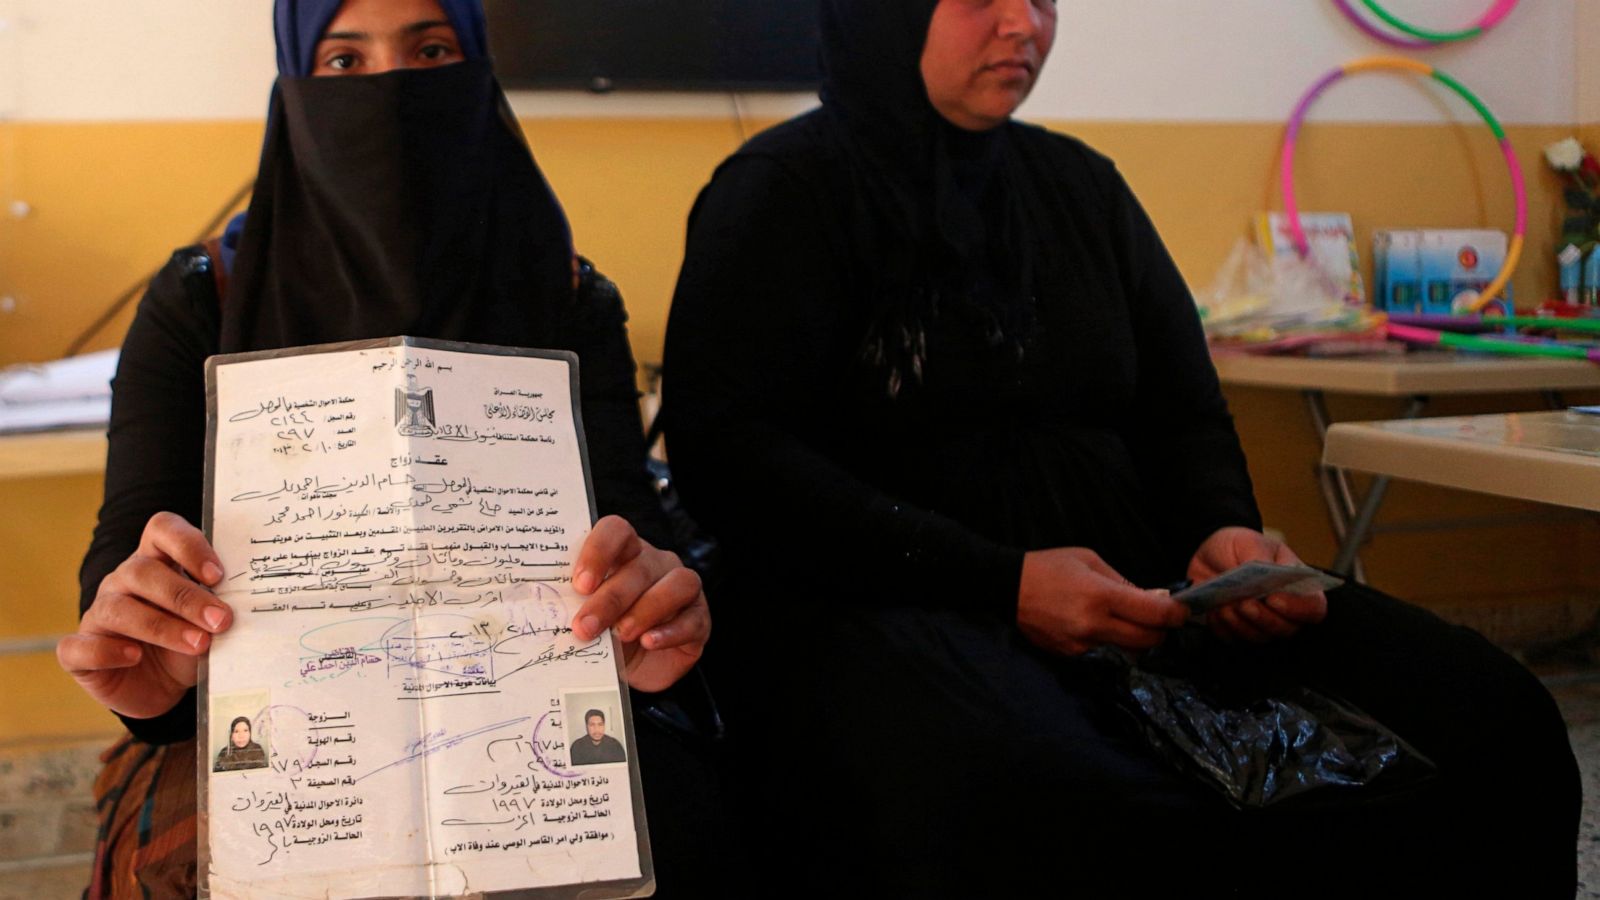 بسم الله الرحمن الرحيم
جمهورية العراق
مجلس القضاء الأعلى
رئاسة محكمة استئناف نينوى الاتحادية
محكمة الاحوال الشخصية في الموصل
رقم السجل / ٢١٤٤
العدد ٢٩٧
التاريخ ٢٠١٣/٢/١٠
عقد زواج
اني قاضي محكمة الاحوال الشخصية في الموصل حسام الدين احمد علي
حضر كل من السيد صالح حمدي والانسة / السيدة نور احمد محمد
والمؤيد سلامتهما من الامراض بالتقريرين الطبيين المقدمين وبعد التثبت من هويتهما
ووقوع الايجاب والقبول منهما فقد تم عقد الزواج بينهما على مهر
معجله مليون ومائتان وخمسون الف
مقبوض غير مقبوض
ومؤجله بذمة الزوج عند
اقرب الاجلين وعليه تم العقد
القاضي
حسام الدين احمد علي
بيانات هوية الاحوال المدنية
الزوجة
رقم الهوية
رقم السجل
رقم الصحيفة ٣
دائرة الاحوال المدنية في القيروان
تاريخ ومحل الولادة ١٩٩٧
الحالة الزوجية باكر
دائرة الاحوال المدنية في القيروان
تاريخ ومحل الولادة ١٩٩٧
الحالة الزوجية اعزب
( موافقة ولي امر القاصر الوصي عند وفاة الاب )